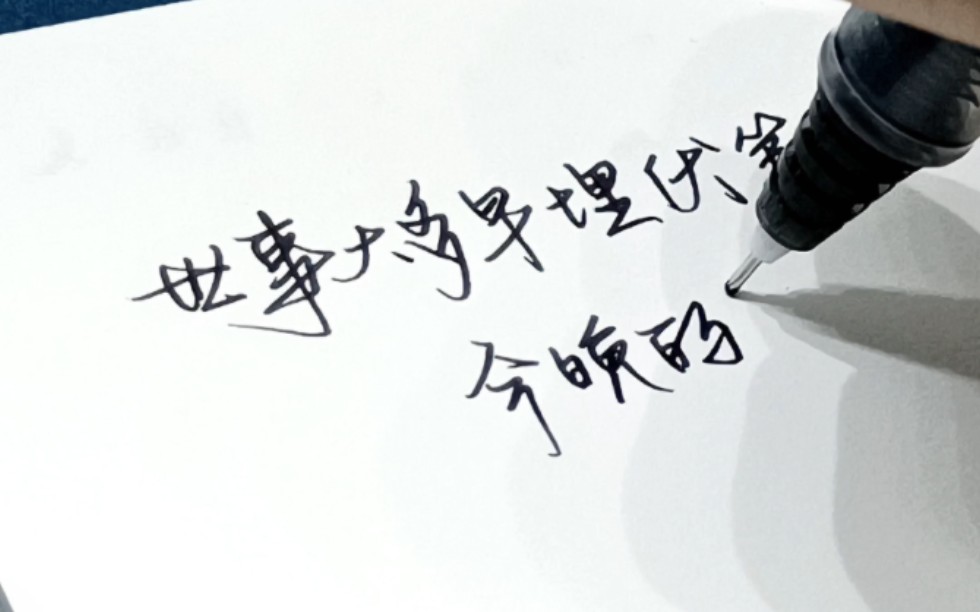 世事大多早埋伏
今晚的